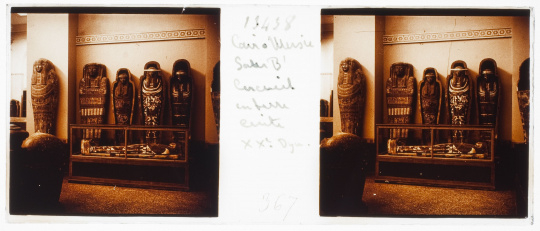 13438
Caire Musée
Salle B'
Cercueil
en pierre
XXe Dyn.
367